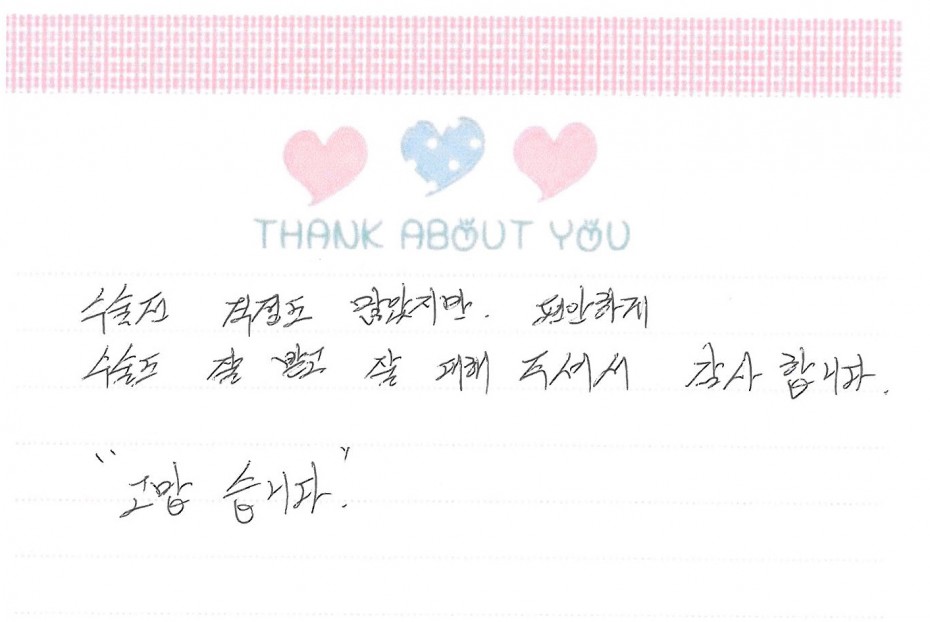 THANK ABOUT YOU
수술전 걱정도 많았지만. 편안하게
수술도 잘 받고 잘 대해 주셔서 감사 합니다.
"고맙 습니다."